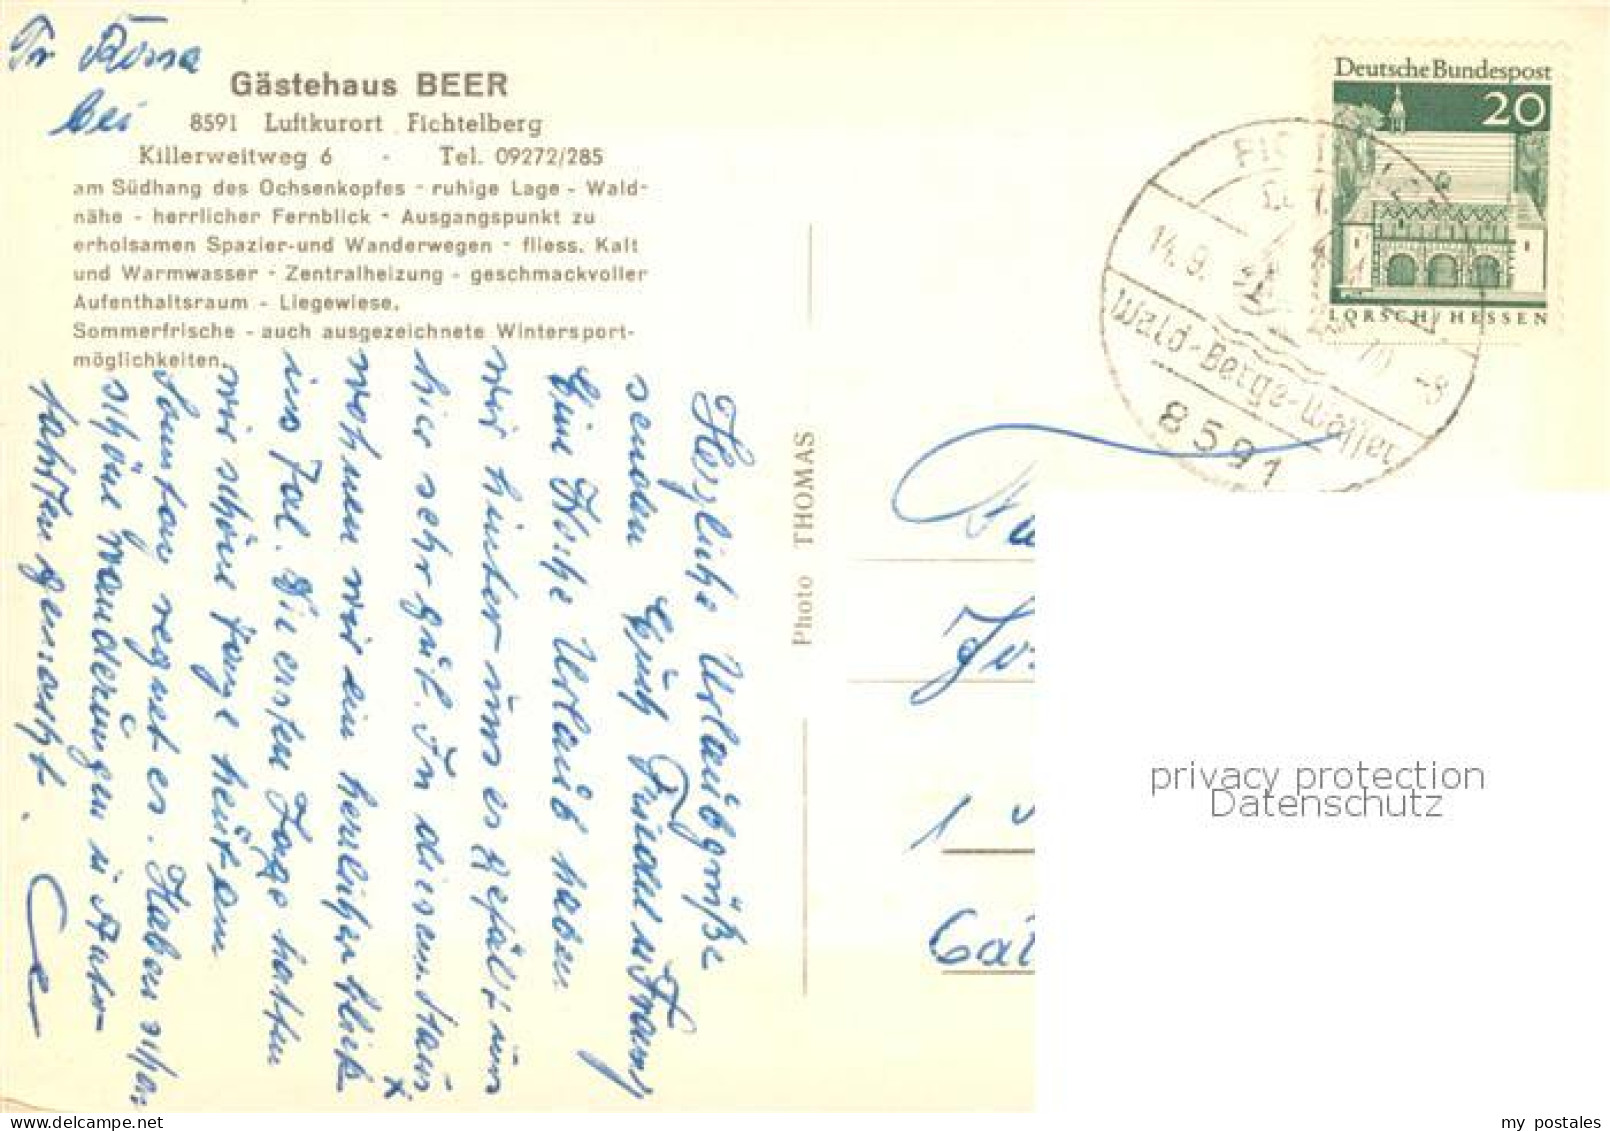 Fr Rösse
bei
Gästehaus BEER
8591 Luftkurort Fichtelberg
Killerweitweg 6 - Tel. 09272/285
am Südhang des Ochsenkopfes - ruhige Lage - Wald-
nähe - herrlicher Fernblick - Ausgangspunkt zu
erholsamen Spazier-und Wanderwegen - fliess. Kalt
und Warmwasser - Zentralheizung - geschmackvoller
Aufenthaltsraum - Liegewiese.
Sommerfrische - auch ausgezeichnete Wintersport-
möglichkeiten.
Herzliche Urlaubsgrüße
senden Euch Friedel u Franz
Eine Woche Urlaub haben
wir hinter uns es gefällt uns
hier sehr gut. In diesem Haus
wohnen wir ein herrlichen Blick
ins Tal. Die ersten Tage hatten
wir schöne Tage heut am
Sonntag regnet es. Haben schon
schöne Wanderungen u Auto-
fahrten gemacht.
Photo THOMAS
Deutsche Bundespost
20
LORSCH / HESSEN
14. 9. 70 -8
Wald-Berge-Wasser
8591
1
privacy protection
Datenschutz
my postales